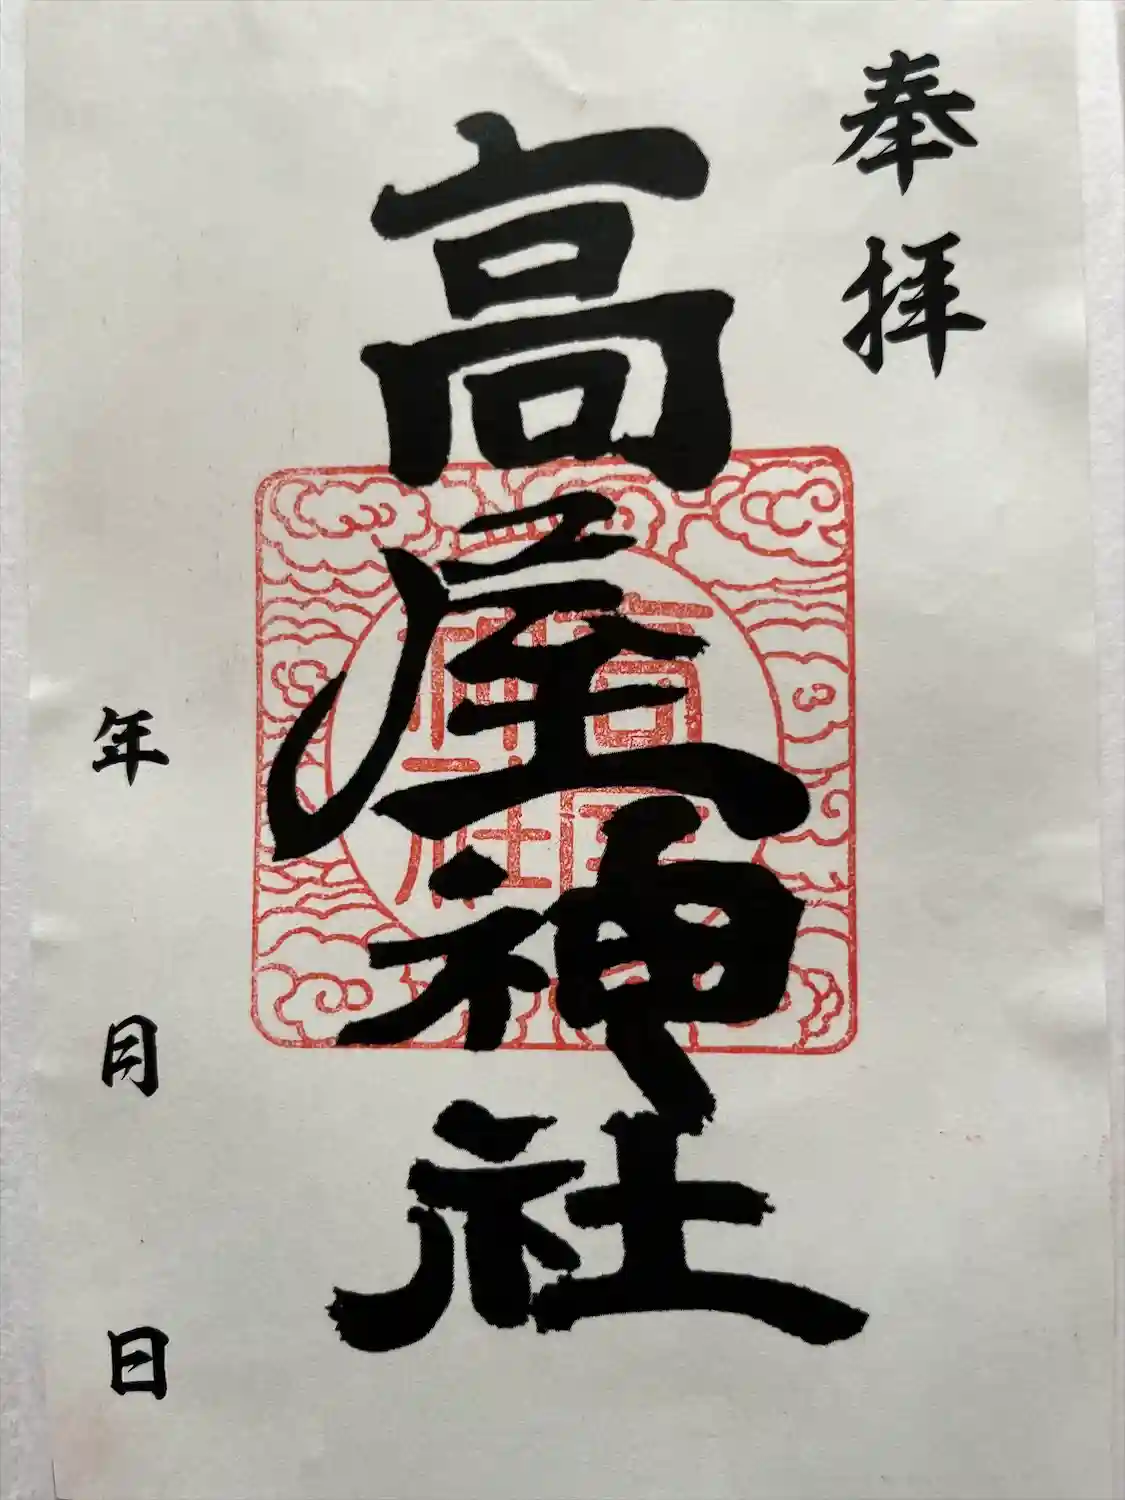 奉拝
高屋神社
高屋神社
年 月 日